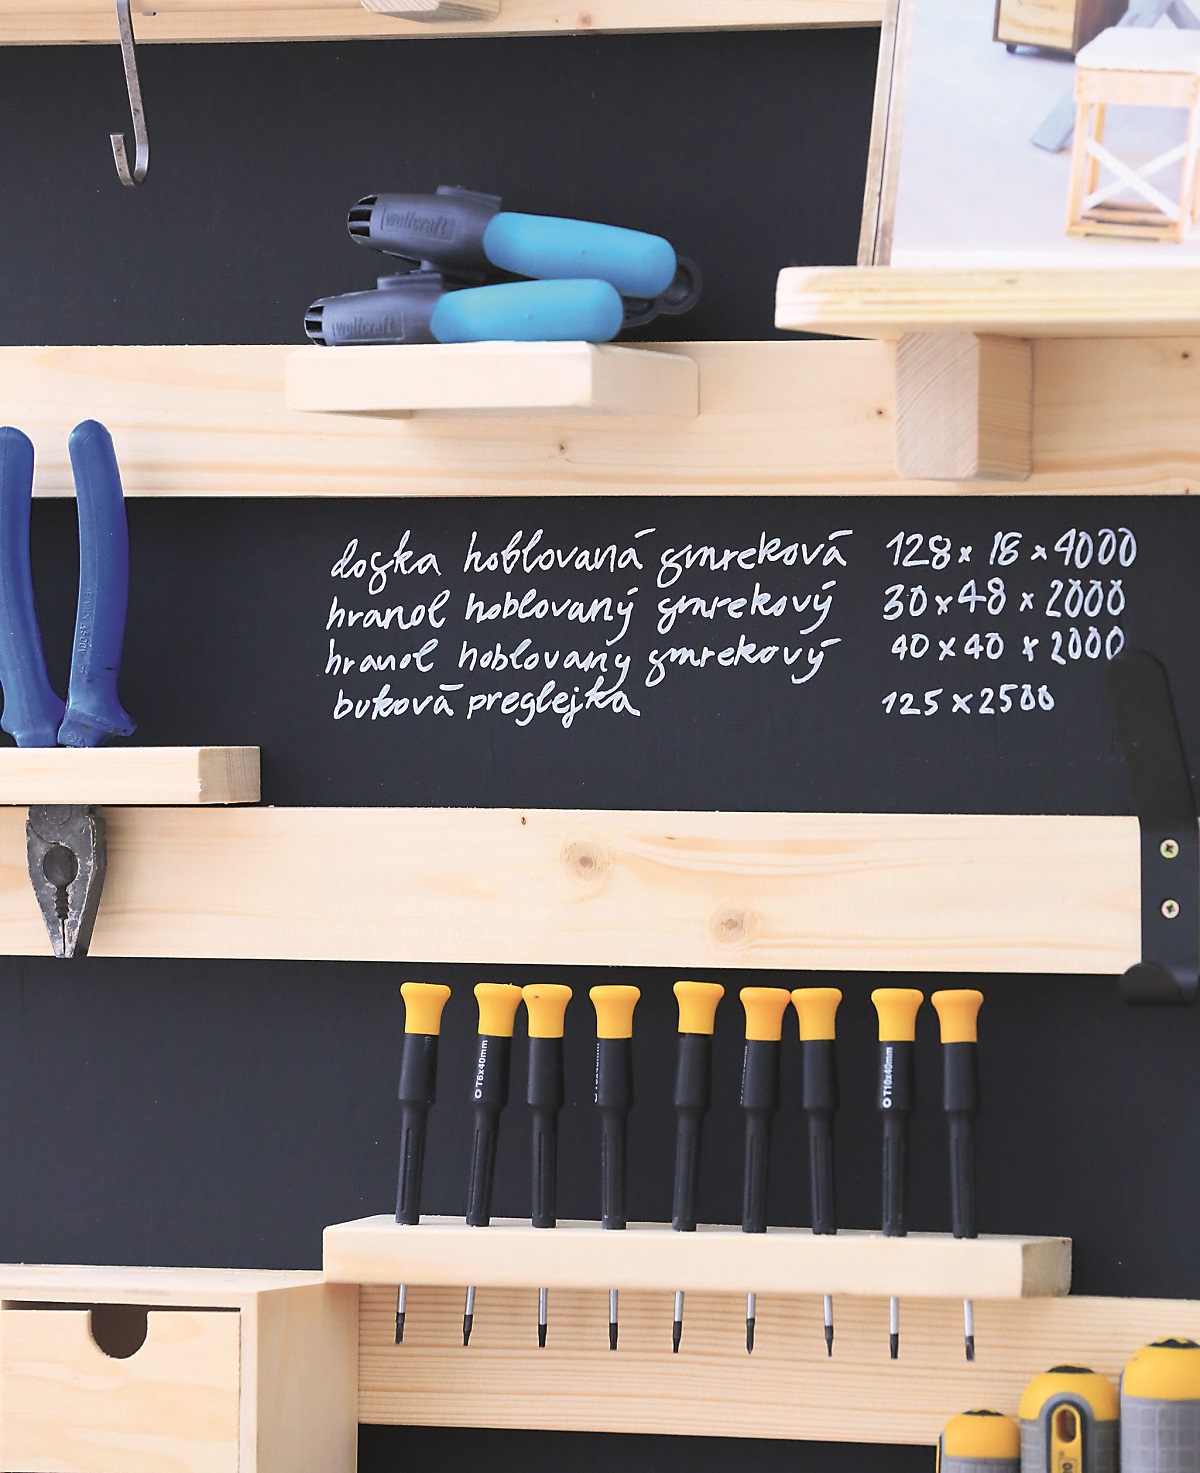 wolfcraft
wolfcraft
doska hoblovaná smreková 128 x 18 x 4000
hranol hoblovaný smrekový 30 x 48 x 2000
hranol hoblovaný smrekový 40 x 40 x 2000
buková preglejka 125 x 2500
T6x40mm
T10x40mm